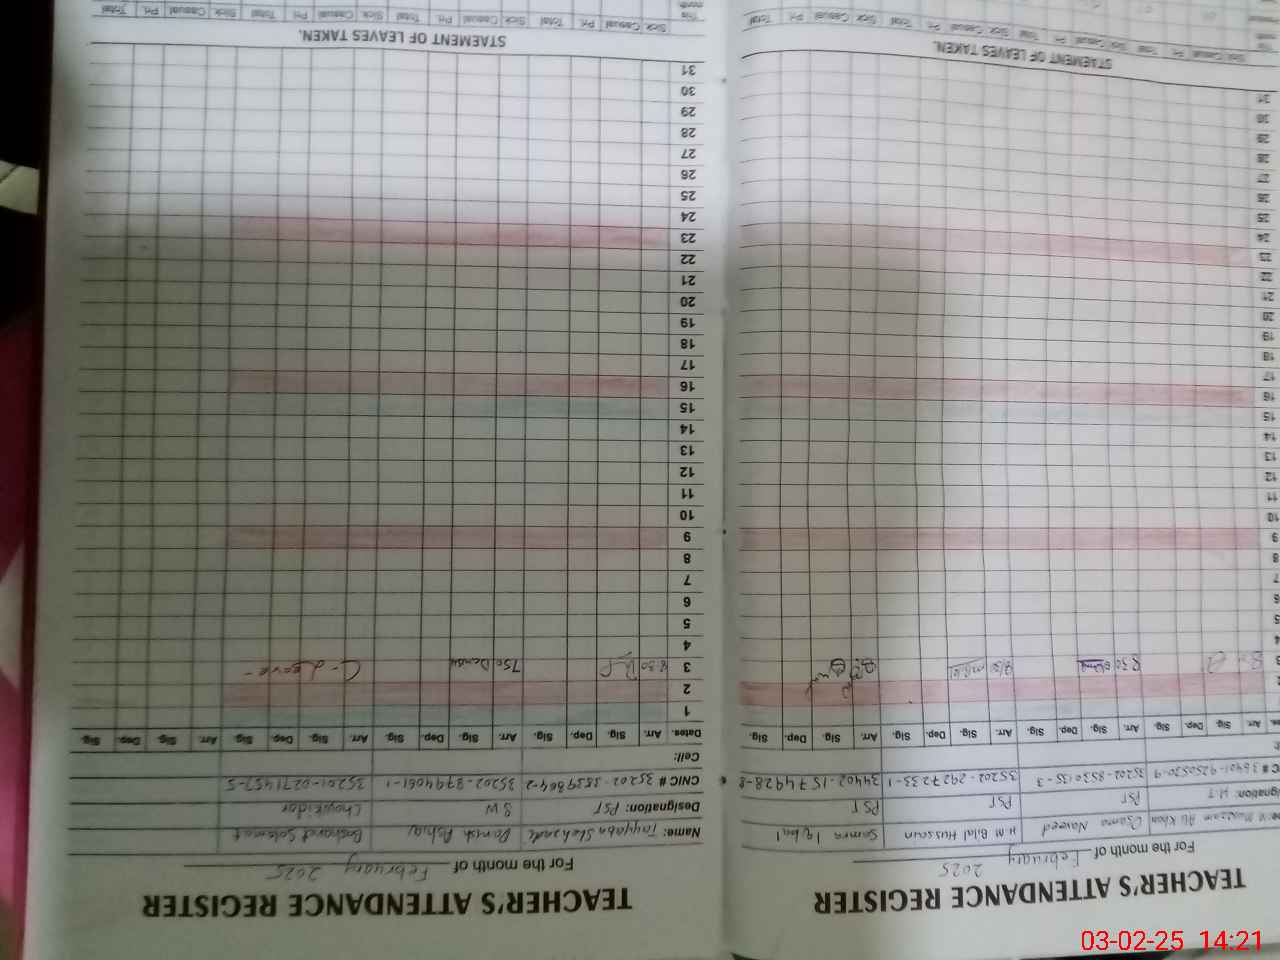 TEACHER'S ATTENDANCE REGISTER
For the month of February 2025
Name: M Moazzam Ali Khan Osama Naveed H.M Bilal Hussain Samra Iqbal
Designation: H.T PST PST PST
CNIC # 38401-9250520-9 35202-8530135-3 35202-2927233-1 34402-1574928-8
Dates. Arr. Sig. Dep. Sig. Arr. Sig. Dep. Sig. Arr. Sig. Dep. Sig. Arr. Sig. Dep. Sig.
2
3 8:30
4
5
6
7
8
9
10
11
12
13
14
15
16
17
18
19
20
21
22
23
24
25
26
27
28
29
30
31
STAEMENT OF LEAVES TAKEN.
Sick Casual Pri Total Sick Casual Pri Total Sick Casual Pri Total Sick Casual Pri Total
TEACHER'S ATTENDANCE REGISTER
For the month of February 2025
Name: Tayyaba Shehzadi Danish Ashiq Basharat Salamat
Designation: PST SW Chowkidar
CNIC # 35202-3839864-2 35202-9794061-1 35201-0271457-5
Cell:
Dates. Arr. Sig. Dep. Sig. Arr. Sig. Dep. Sig. Arr. Sig. Dep. Sig. Arr. Sig. Dep. Sig.
1
2
3 8:30 750 Danish C-Leave-
4
5
6
7
8
9
10
11
12
13
14
15
16
17
18
19
20
21
22
23
24
25
26
27
28
29
30
31
STAEMENT OF LEAVES TAKEN.
This month Sick Casual Pri Total Sick Casual Pri Total Sick Casual Pri Total Sick Casual Pri Total
03-02-25 14:21